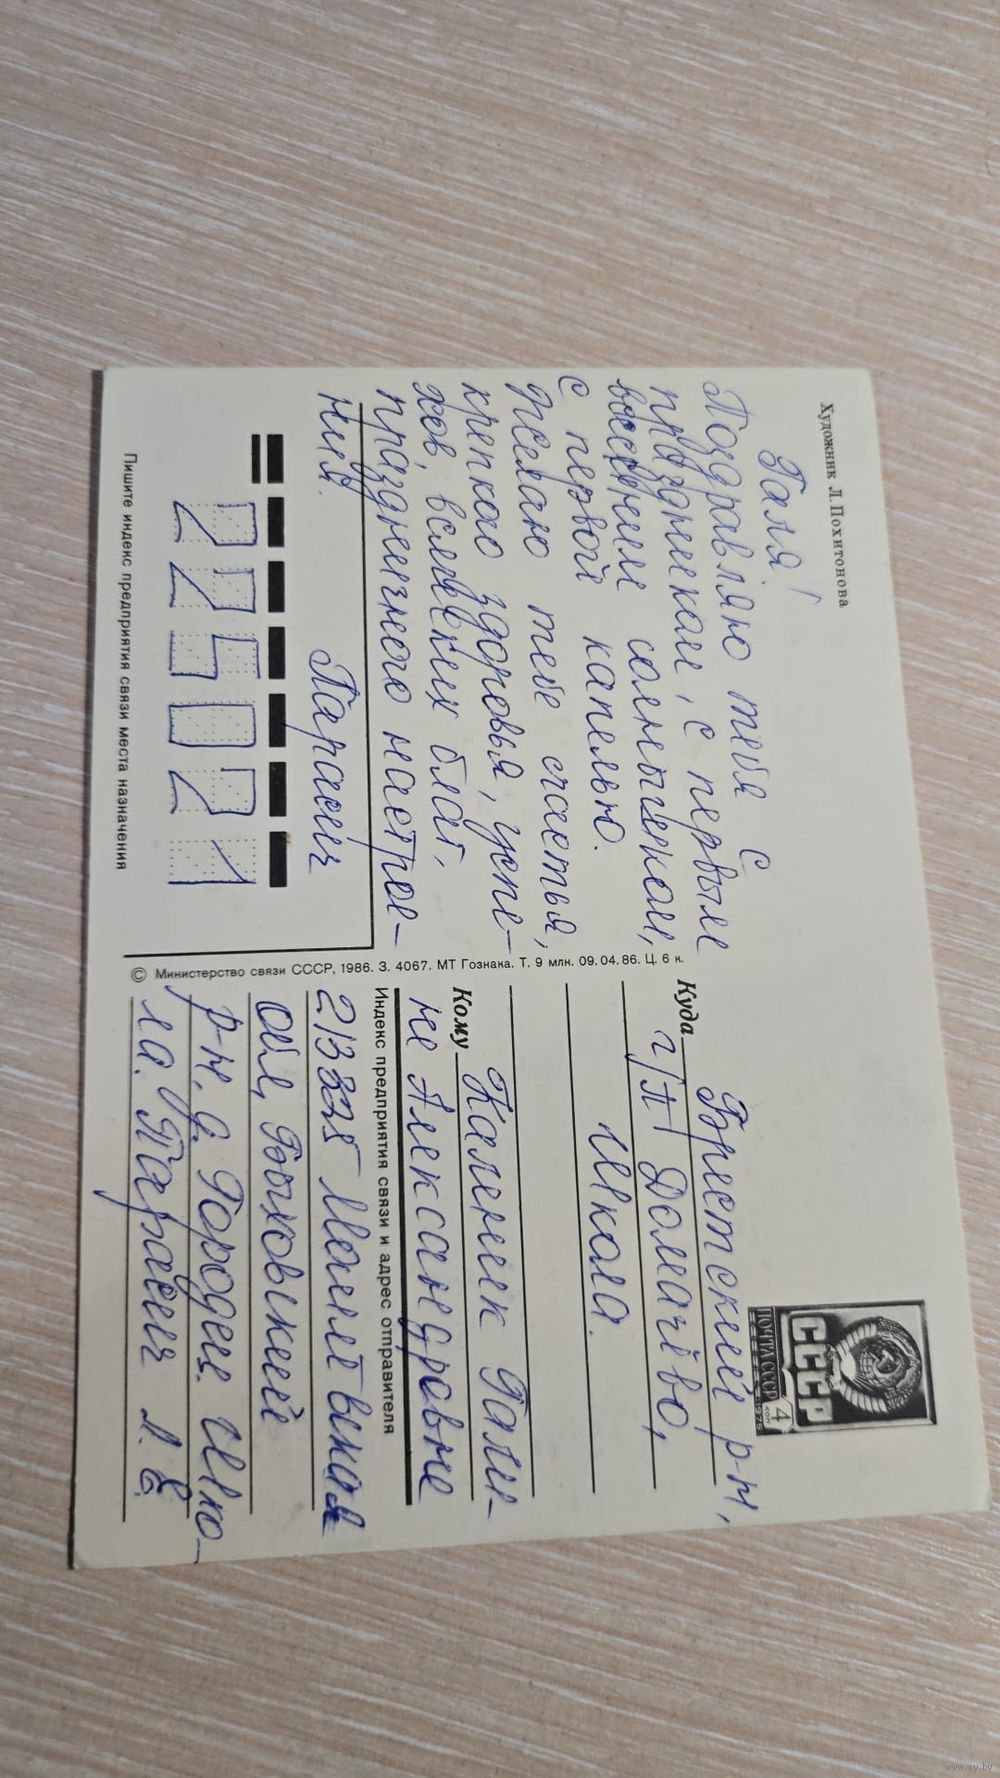 Художник Л.Похитонова
Галя!
Поздравляю тебя с
праздником, с первым
весенним солнышком,
с первой капелью.
Желаю тебе счастья,
крепкого здоровья, успе-
хов, всяческих благ,
праздничного настрое-
ния.
Парасич
225021
Пишите индекс предприятия связи места назначения
© Министерство связи СССР, 1986. З. 4067. МТ Гознака. Т. 9 млн. 09.04.86. Ц. 6 к.
ПОЧТА СССР
СССР
4
КОП
1976
Куда Брестский р-н,
г/п Домачёво,
школа.
Кому Каленик Гали-
не Александровне
Индекс предприятия связи и адрес отправителя
213325 Могилёвская
обл, Быховский
р-н, д. Городец шко-
ла. Парасич Л. Е.
www.ay.by